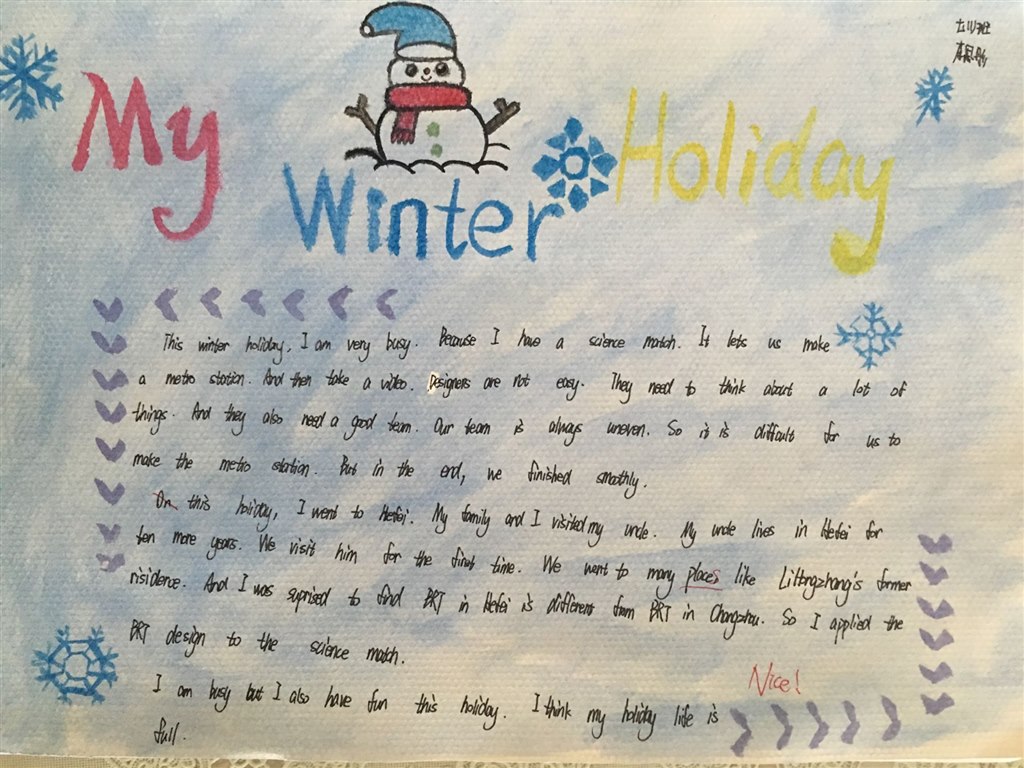 My
Winter
Holiday
This winter holiday, I am very busy. Because I have a science match. It lets us make
a metro station. And then take a video. Designers are not easy. They need to think about a lot of
things. And they also need a good team. Our team is always uneven. So it is difficult for us to
make the metro station. But in the end, we finished smoothly.
On this holiday, I went to Hefei. My family and I visited my uncle. My uncle lives in Hefei for
ten more years. We visit him for the first time. We went to many places like LiHongzhang's former
risidence. And I was suprised to find BRT in Hefei is different from BRT in Changzhou. So I applied the
BRT design to the science match.
I am busy but I also have fun this holiday. I think my holiday life is
full.
Nice!